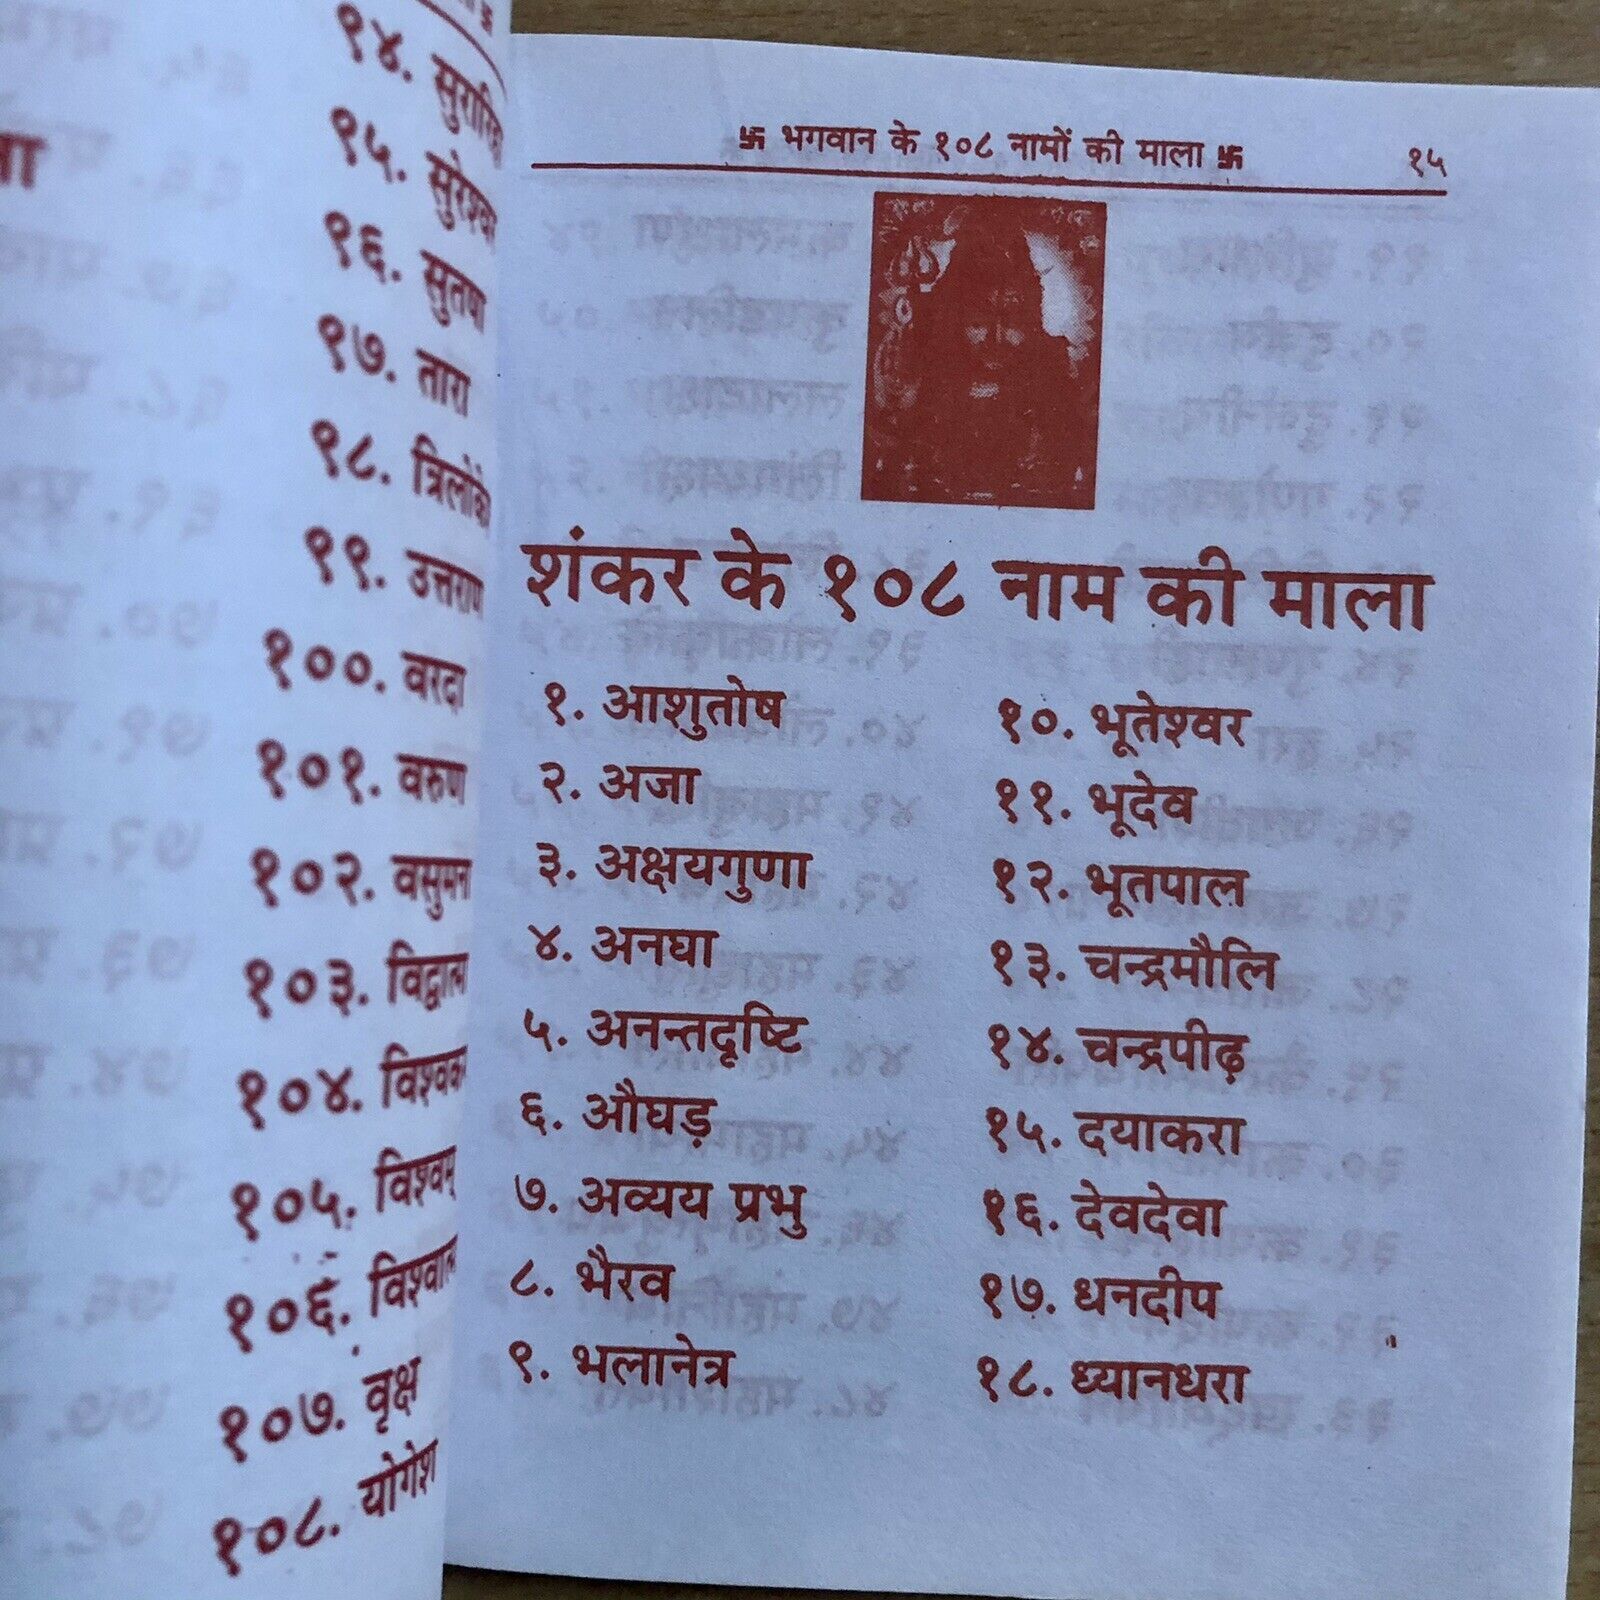 ९४.
९५.
९६. सुतषा
९७. तारा
९८.
९९.
१००. वरदा
१०१. वरुण
१०२.
१०३.
१०४.
१०५. विश्वम्
१०६.
१०७. वृक्ष
१०८. योगेश
卐 भगवान के १०८ नामों की माला 卐 १५
शंकर के १०८ नाम की माला
१. आशुतोष
२. अजा
३. अक्षयगुणा
४. अनघा
५. अनन्तदृष्टि
६. औघड़
७. अव्यय प्रभु
८. भैरव
९. भलानेत्र
१०. भूतेश्वर
११. भूदेव
१२. भूतपाल
१३. चन्द्रमौलि
१४. चन्द्रपीढ़
१५. दयाकरा
१६. देवदेवा
१७. धनदीप
१८. ध्यानधरा